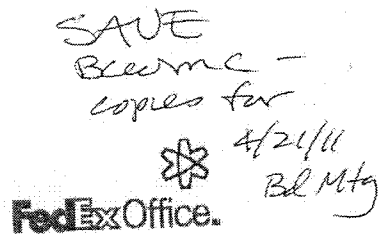 SAVE
copies for
4/21/11
Bd Mtg
FedEx Office.